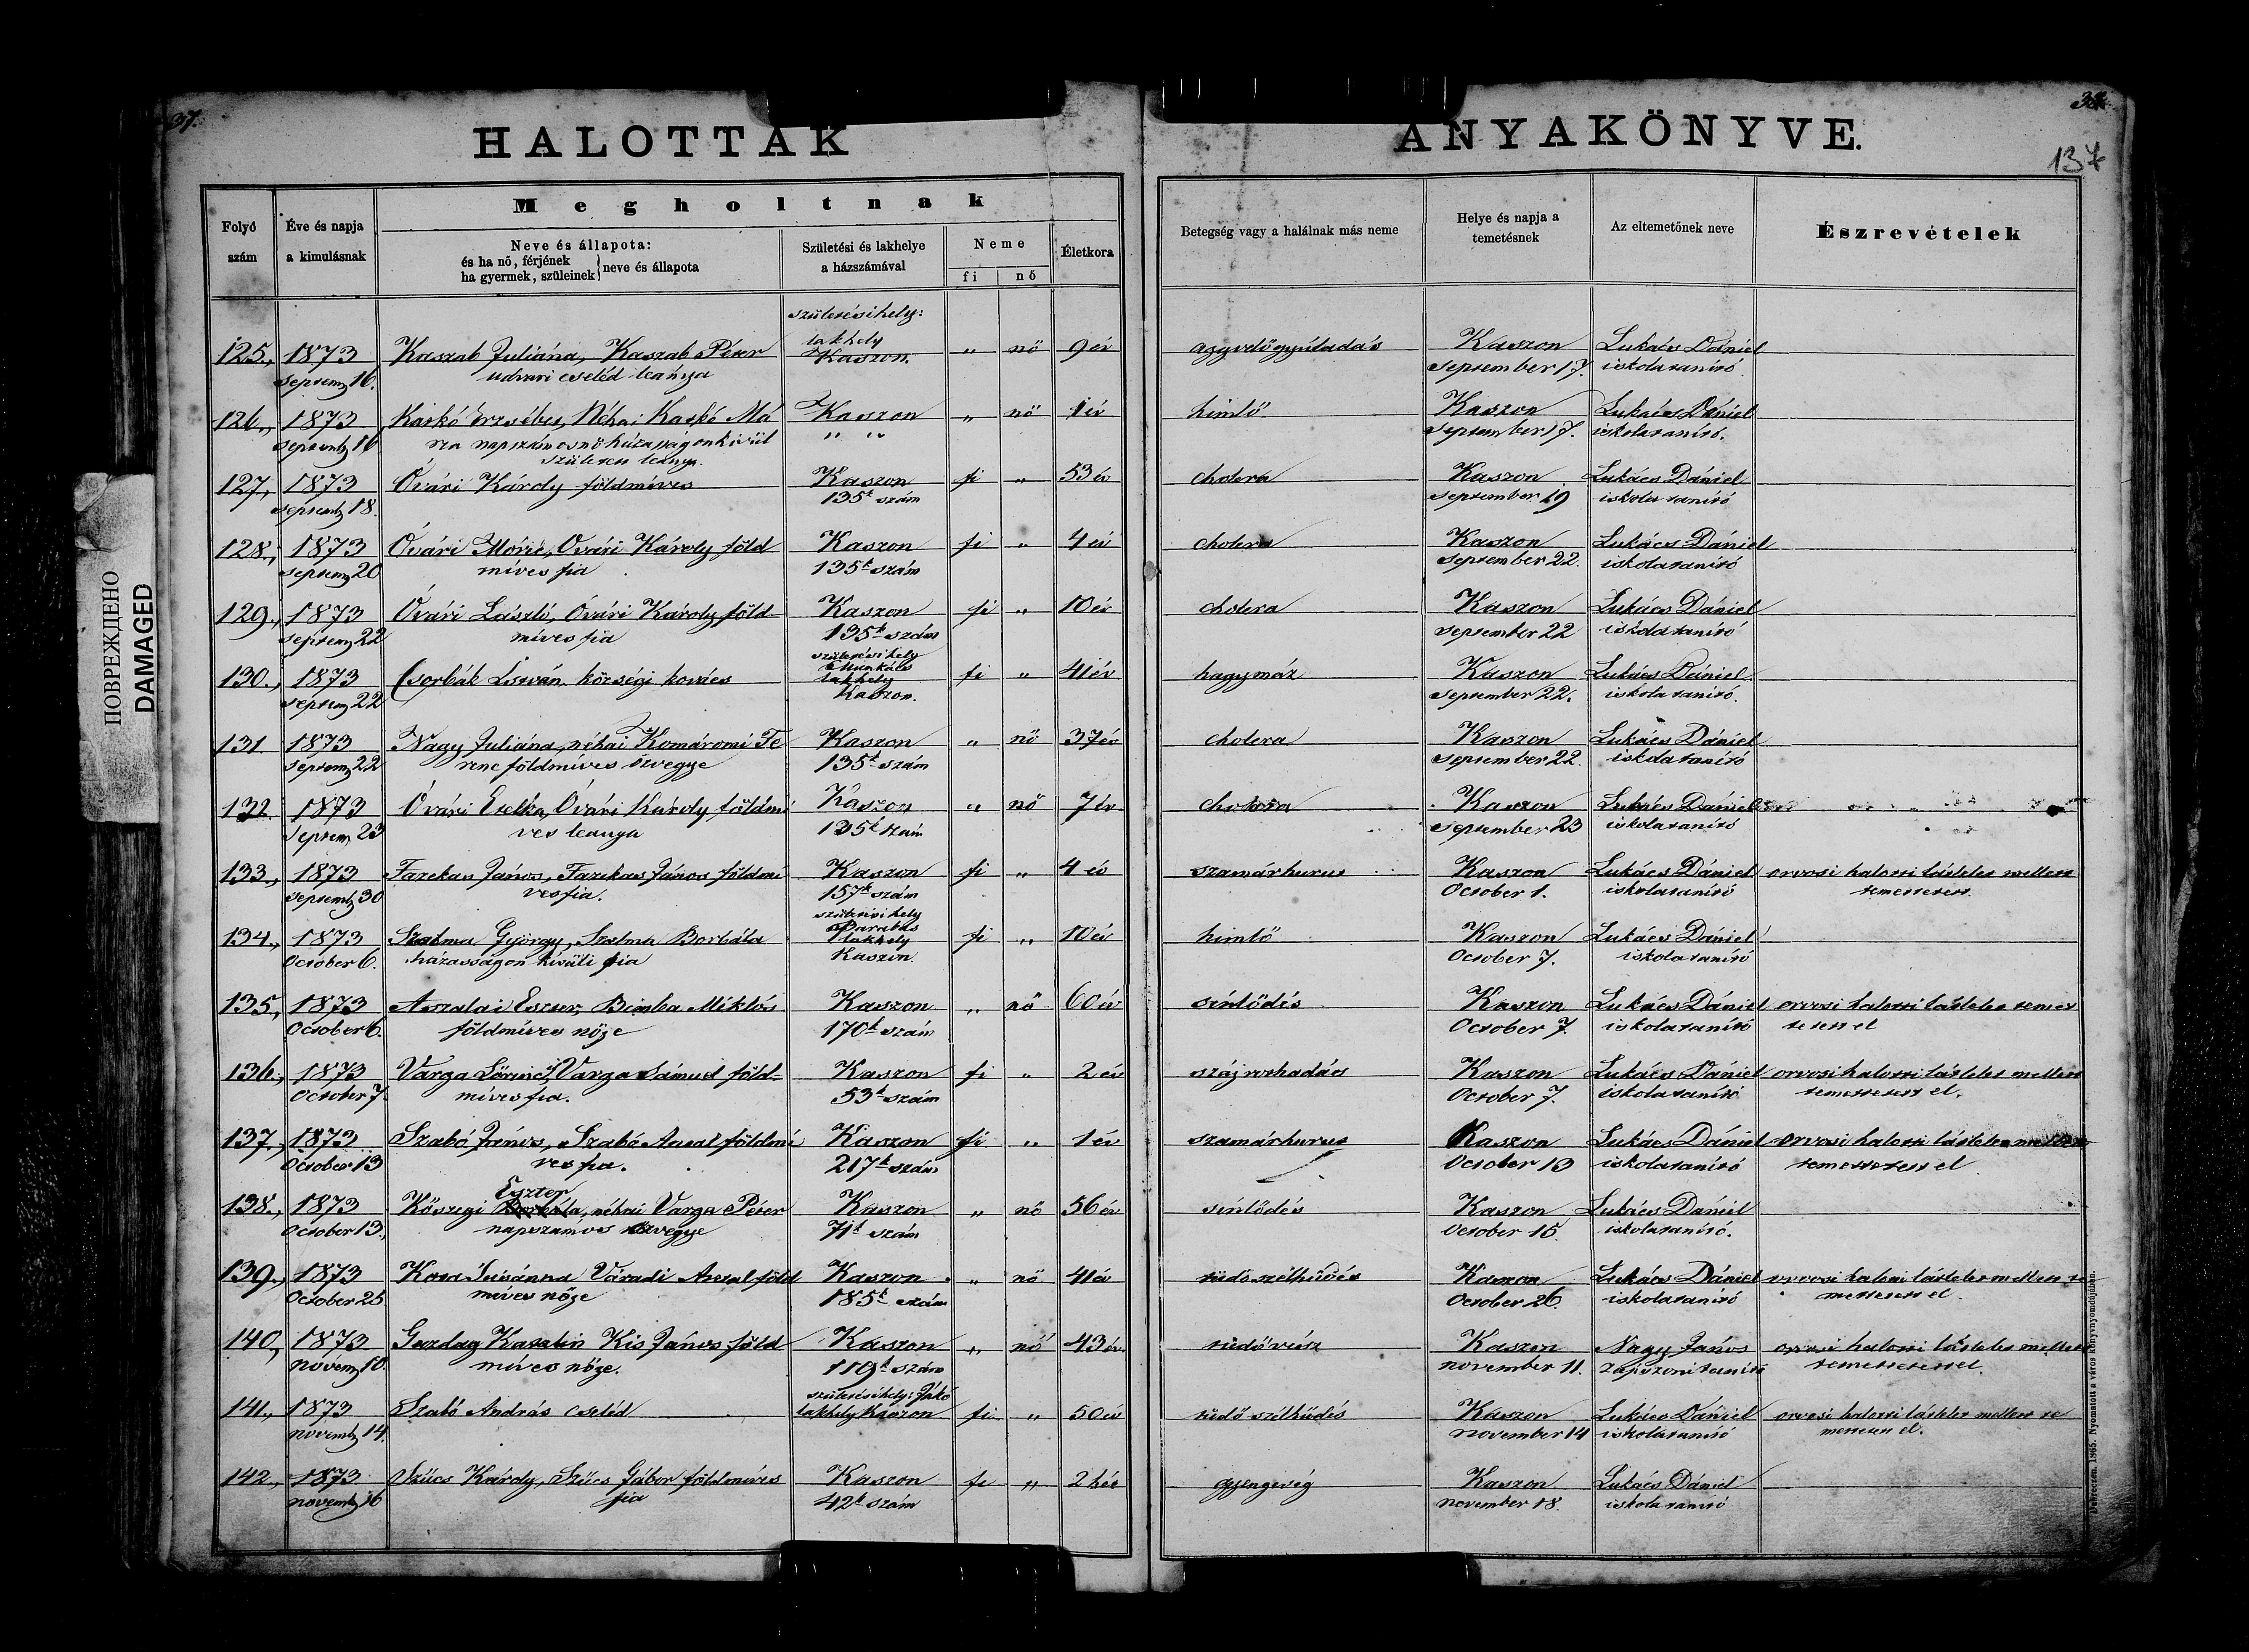 37.
HALOTTAK
ANYAKÖNYVE.
137
ПОВРЕЖДЕНО
DAMAGED
Folyó szám
Éve és napja a kimulásnak
Megholtnak
Neve és állapota:
és ha nő, férjének
ha gyermek, szüleinek } neve és állapota
Születési és lakhelye a házszámával
Neme
fi nő
Életkora
Betegség vagy a halálnak más neme
Helye és napja a temetésnek
Az eltemetőnek neve
Észrevételek
születési hely:
lakhely
125., 1873 Kaszab Juliána, Kaszab Péter Kaszon. „ nő 9 év agyvelőgyúladás Kaszon Lukács Dániel
septemb 16. udvari cseléd leánya september 17. iskolatanító
126., 1873 Kaskó Erzsébet, Néhai Kaskó Má Kaszon „ nő 1 év himlő Kaszon Lukács Dániel
septemb 16 ria napszámosnő házasságonkivül „ „ september 17. iskolatanító.
született leánya.
127., 1873 Óvári Károly földmíves Kaszon fi „ 53 év cholera Kaszon Lukács Dániel
septemb 18. 135k szám september 19 iskolatanító
128., 1873 Óvári Móric, Óvári Károly föld Kaszon fi „ 4 év cholera Kaszon Lukács Dániel
septemb 20 míves fia 135k szám september 22. iskolatanító
129., 1873 Óvári László, Óvári Károly föld Kaszon fi „ 10 év cholera Kaszon Lukács Dániel
septemb 22 míves fia 135k szám september 22 iskolatanító
születési hely
Munkács
130., 1873 Csorbák István községi kovács lakhely fi „ 41 év hagymáz Kaszon Lukács Dániel
septemb 22 Kaszon. september 22. iskolatanító.
131 1873 Nagy Juliána, néhai Komáromi Fe Kaszon „ nő 37 év cholera Kaszon Lukács Dániel
septemb 22 renc földmíves özvegye 135k szám september 22. iskolatanító
132. 1873 Óvári Etelka, Óvári Károly földmí Kaszon „ nő 7 év cholera Kaszon Lukács Dániel
septem. 23 ves leanya 135k szám september 23 iskolatanító
133., 1873 Fazekas János, Fazekas János földmí Kaszon fi „ 4 év szamárhurut Kaszon Lukács Dániel orvosi halotti látlelet mellett
septemb 30 ves fia. 157k szám October 1. iskolatanító temettetett.
születési hely
134., 1873 Szalma György, Szalma Borbála lakhely fi „ 10 év himlő Kaszon Lukács Dániel
October 6. házasságon kívüli fia Kaszon. October 7. iskolatanító
135., 1873 Aszalai Eszter, Bimba Miklós Kaszon „ nő 60 év sínlődés Kaszon Lukács Dániel orvosi halotti látlelet temet
October 6. földmíves nője 170k szám October 7. iskolatanító tetett el
136., 1873 Varga Lőrincz, Varga Sámuel föld- Kaszon fi „ 2 év szájrothadás Kaszon Lukács Dániel orvosi halotti látlelet mellett
October 7. míves fia. 53k szám October 7. iskolatanító temettetett el.
137., 1873 Szabó János, Szabó Antal földmí Kaszon fi „ 1 év szamárhurut Kaszon Lukács Dániel orvosi halotti látlelet mellett
October 13 ves fia. 217k szám October 13 iskolatanító temettetett el
Eszter
138., 1873 Kőszegi Borbála, néhai Varga Péter Kaszon „ nő 56 év sínlődés Kaszon Lukács Dániel
October 13. napszámos özvegye 71k szám October 15 iskolatanító.
139., 1873 Kosa Susánna Váradi Antal föld Kaszon „ nő 41 év tüdőszélhűdés Kaszon Lukács Dániel orvosi halotti látlelet mellett te
October 25 míves nője 185k szám October 26. iskolatanító mettetett el.
140., 1873 Gazdag Katalin Kis János föld Kaszon „ nő 43 év tüdővész Kaszon Nagy János orvosi halotti látlelet mellett
novemb 10. míves nője. 119k szám november 11. zápszoni tanító temettetett el.
születési hely: Jákó
141., 1873 Szabó András cseléd lakhely Kaszon fi „ 50 év tüdő szélhűdés Kaszon Lukács Dániel orvosi halotti látlelet mellett te
novemb 14. november 14 iskolatanító mettetett el.
142., 1873 Szűcs Károly, Szűcs Gábor földmíves Kaszon fi „ 2 hét gyengeség Kaszon Lukács Dániel
novemb 16 fia 42k szám november 18. iskolatanító
Debreczen. 1865. Nyomatott a város könyvnyomdájában.